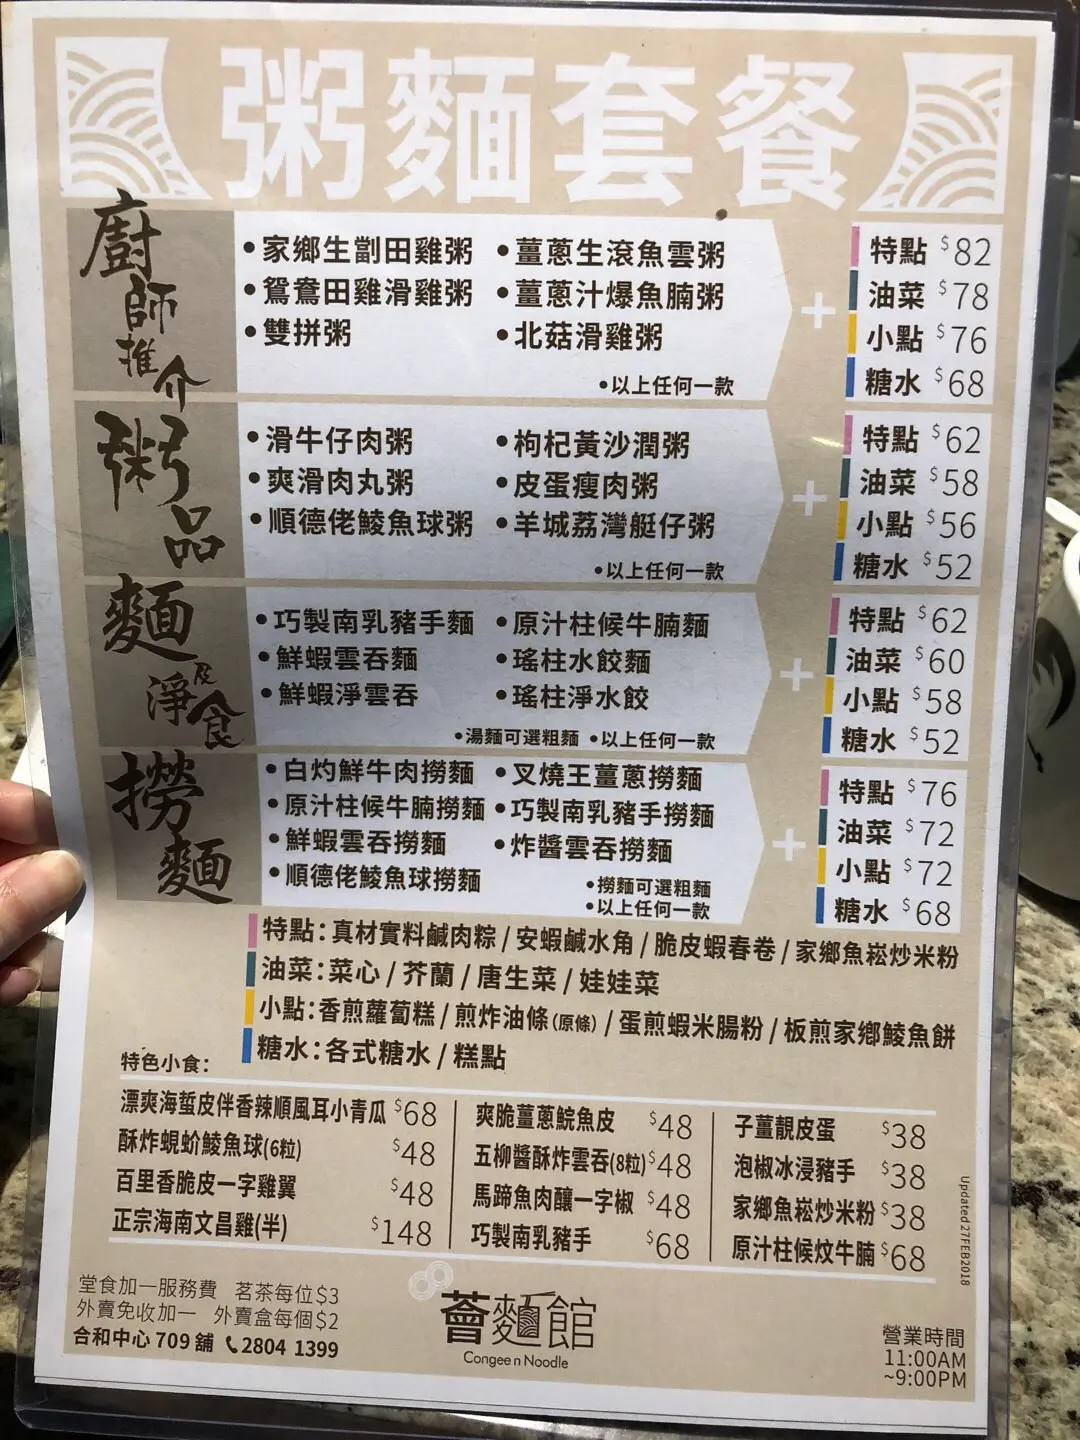 粥麵套餐
廚師推介
•家鄉生劏田雞粥 •薑蔥生滾魚雲粥
•鴛鴦田雞滑雞粥 •薑蔥汁爆魚腩粥
•雙拼粥 •北菇滑雞粥
•以上任何一款
+
特點 $82
油菜 $78
小點 $76
糖水 $68
粥品
•滑牛仔肉粥 •枸杞黃沙潤粥
•爽滑肉丸粥 •皮蛋瘦肉粥
•順德佬鯪魚球粥 •羊城荔灣艇仔粥
•以上任何一款
+
特點 $62
油菜 $58
小點 $56
糖水 $52
麵及淨食
•巧製南乳豬手麵 •原汁柱候牛腩麵
•鮮蝦雲吞麵 •瑤柱水餃麵
•鮮蝦淨雲吞 •瑤柱淨水餃
•湯麵可選粗麵 •以上任何一款
+
特點 $62
油菜 $60
小點 $58
糖水 $52
撈麵
•白灼鮮牛肉撈麵 •叉燒王薑蔥撈麵
•原汁柱候牛腩撈麵 •巧製南乳豬手撈麵
•鮮蝦雲吞撈麵 •炸醬雲吞撈麵
•順德佬鯪魚球撈麵
•撈麵可選粗麵
•以上任何一款
+
特點 $76
油菜 $72
小點 $72
糖水 $68
特點:真材實料鹹肉粽/安蝦鹹水角/脆皮蝦春卷/家鄉魚崧炒米粉
油菜:菜心/芥蘭/唐生菜/娃娃菜
小點:香煎蘿蔔糕/煎炸油條(原條)/蛋煎蝦米腸粉/板煎家鄉鯪魚餅
糖水:各式糖水/糕點
特色小食:
漂爽海蜇皮伴香辣順風耳小青瓜 $68
酥炸蜆蚧鯪魚球(6粒) $48
百里香脆皮一字雞翼 $48
正宗海南文昌雞(半) $148
爽脆薑蔥鯇魚皮 $48
五柳醬酥炸雲吞(8粒) $48
馬蹄魚肉釀一字椒 $48
巧製南乳豬手 $68
子薑靚皮蛋 $38
泡椒冰浸豬手 $38
家鄉魚崧炒米粉 $38
原汁柱候炆牛腩 $68
Updated 27FEB2018
堂食加一服務費 茗茶每位$3
外賣免收加一 外賣盒每個$2
合和中心 709 舖 2804 1399
薈麵館
Congee n Noodle
營業時間
11:00AM
~9:00PM